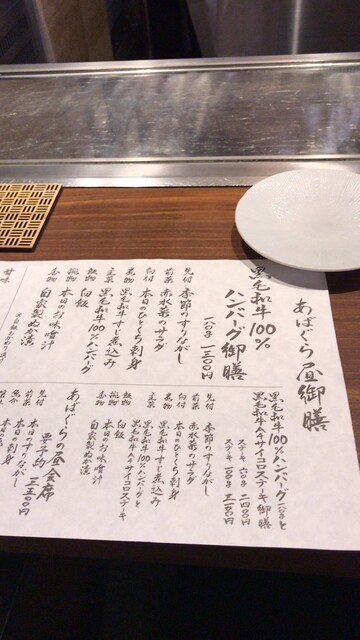 あばぐら昼御膳
黒毛和牛100%
ハンバーグ御膳
一八〇g 一三〇〇円
先付 季節のすりながし
前菜 赤水菜のサラダ
向付 本日のひとくち刺身
煮物 黒毛和牛すじ煮込み
主菜 黒毛和牛100%ハンバーグ
飯物 白飯
椀物 本日のお味噌汁
香物 自家製ぬか漬
甘味
黒毛和牛100%ハンバーグ一八〇gと
黒毛和牛A4サイコロステーキ御膳
ステーキ 六〇g 二四〇〇円
ステーキ 一〇〇g 三一〇〇円
先付 季節のすりながし
前菜 赤水菜のサラダ
向付 本日のひとくち刺身
煮物 黒毛和牛すじ煮込み
主菜 黒毛和牛100%ハンバーグと
黒毛和牛A4サイコロステーキ
飯物 白飯
椀物 本日のお味噌汁
香物 自家製ぬか漬
あばぐらの昼会席
要予約 三三〇〇円
先付 本日のすりながし
前菜
本日の刺身